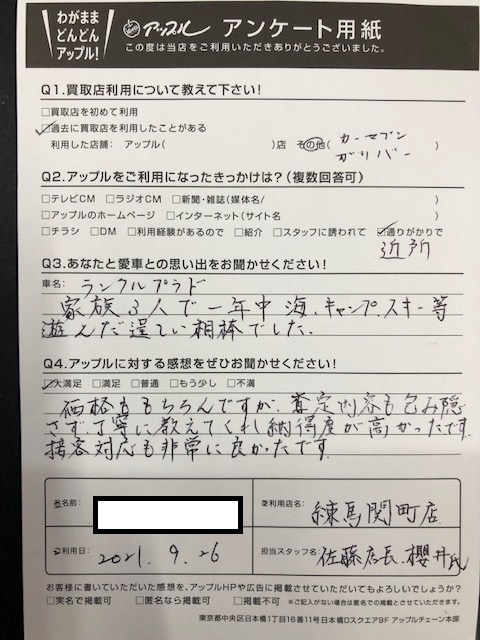 わがまま
どんどん
アップル!
アップル アンケート用紙
この度は当店をご利用いただきありがとうございました。
Q1.買取店利用について教えて下さい!
□買取店を初めて利用
☑過去に買取店を利用したことがある
利用した店舗: アップル( )店 その他( カーセブン
ガリバー )
Q2.アップルをご利用になったきっかけは?(複数回答可)
□テレビCM □ラジオCM □新聞・雑誌(媒体名/ )
□アップルのホームページ □インターネット(サイト名 )
□チラシ □DM □利用経験があるので □紹介 □スタッフに誘われて ☑通りがかりで
近所
Q3.あなたと愛車との思い出をお聞かせください!
車名: ランクルプラド
家族3人で一年中海、キャンプスキー等
遊んだ逞しい相棒でした。
Q4.アップルに対する感想をぜひお聞かせください!
☑大満足 □満足 □普通 □もう少し □不満
価格ももちろんですが、査定内容も包み隠
さず丁寧に教えてくれ納得度が高かったです。
接客対応も非常に良かたです。
お名前: ご利用店名: 練馬関町店
ご利用日: 2021. 9. 26 担当スタッフ名: 佐藤店長、櫻井氏
お客様に書いていただいた感想を、アップルHPや広告に掲載させていただいてもよろしいでしょうか?
□実名で掲載可 □匿名なら掲載可 □掲載不可 ※ご記入がない場合は匿名での掲載とさせていただきます。
東京都中央区日本橋1丁目16番11号日本橋Dスクエア9F アップルチェーン本部